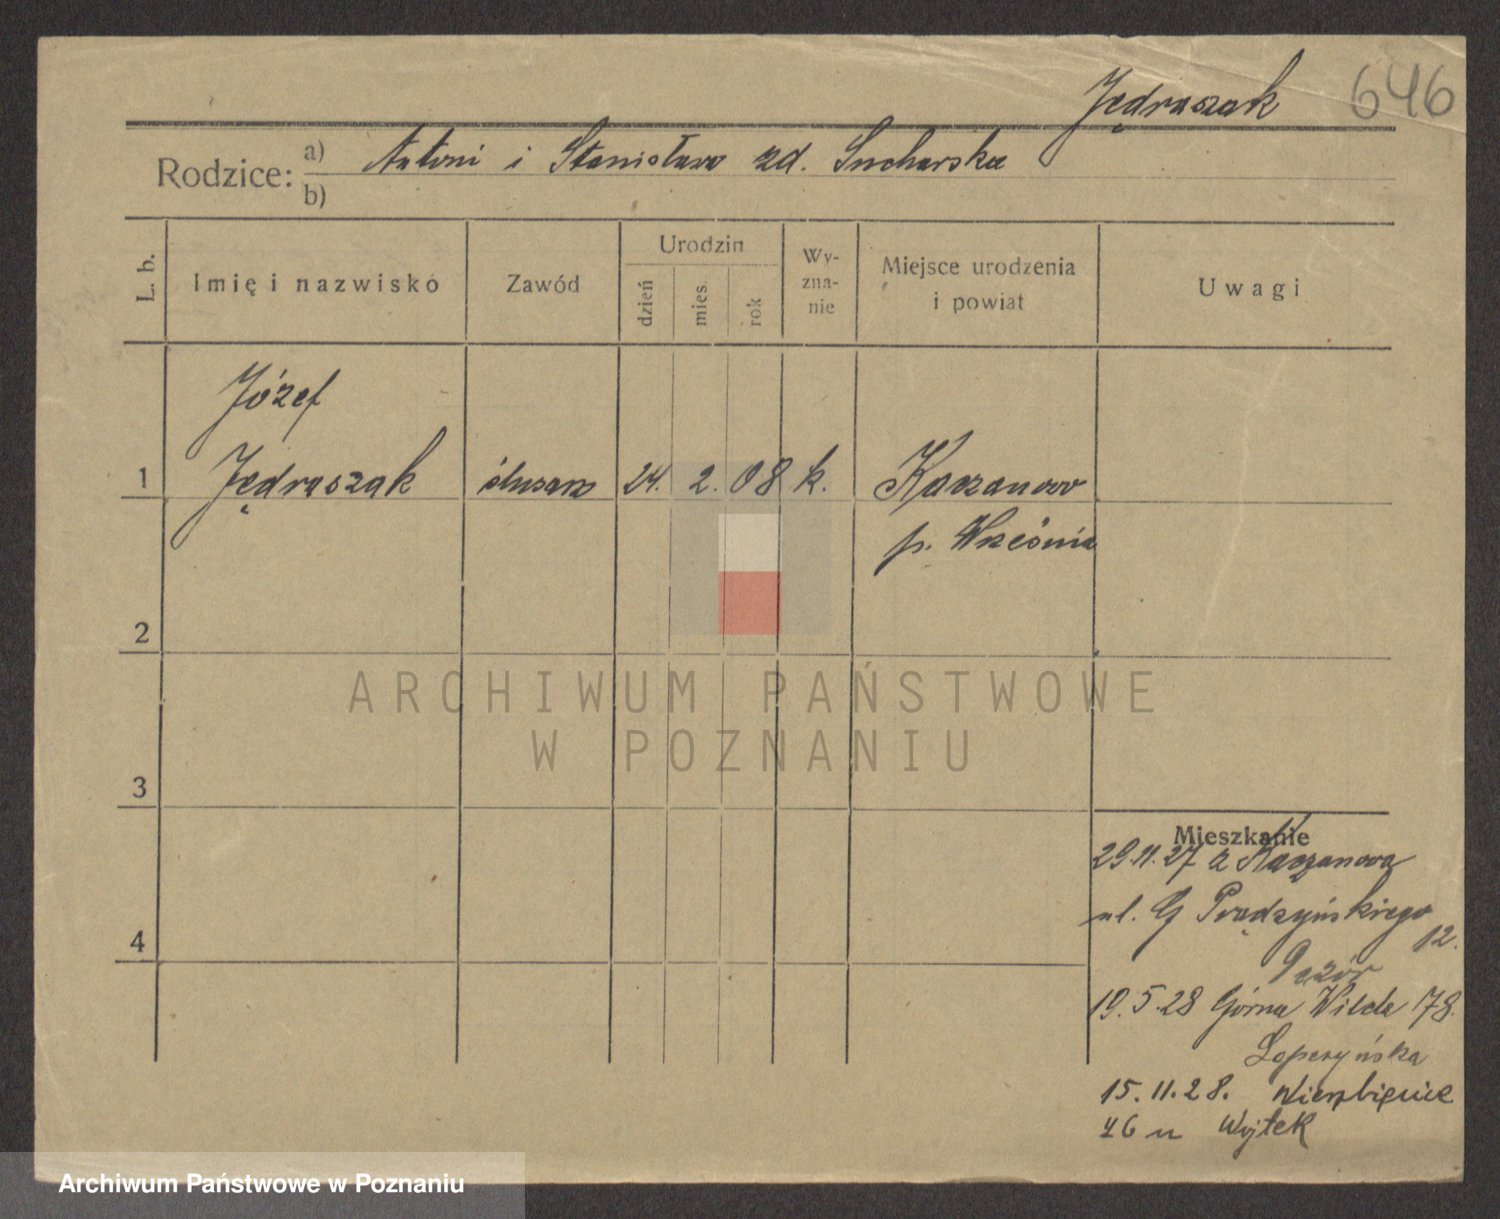 Jędraszak 646
Rodzice: a) Antoni i Stanisława zd. Sucharska
b)
L. b.
Imię i nazwisko
Zawód
Urodzin
dzień
mies.
rok
Wy-
zna-
nie
Miejsce urodzenia
i powiat
Uwagi
Józef
1 Jędraszak ślusarz 24. 2. 08 k. Kaczanowo
p. Września
2
ARCHIWUM PAŃSTWOWE
W POZNANIU
3
Mieszkanie
29.11.27 z Kaczanowa
ul. G Prądzyńskiego
12.
4
19.5.28 Górna Wilda 78.
15.11.28. Wierzbięcice
46 u Wojtek
Archiwum Państwowe w Poznaniu